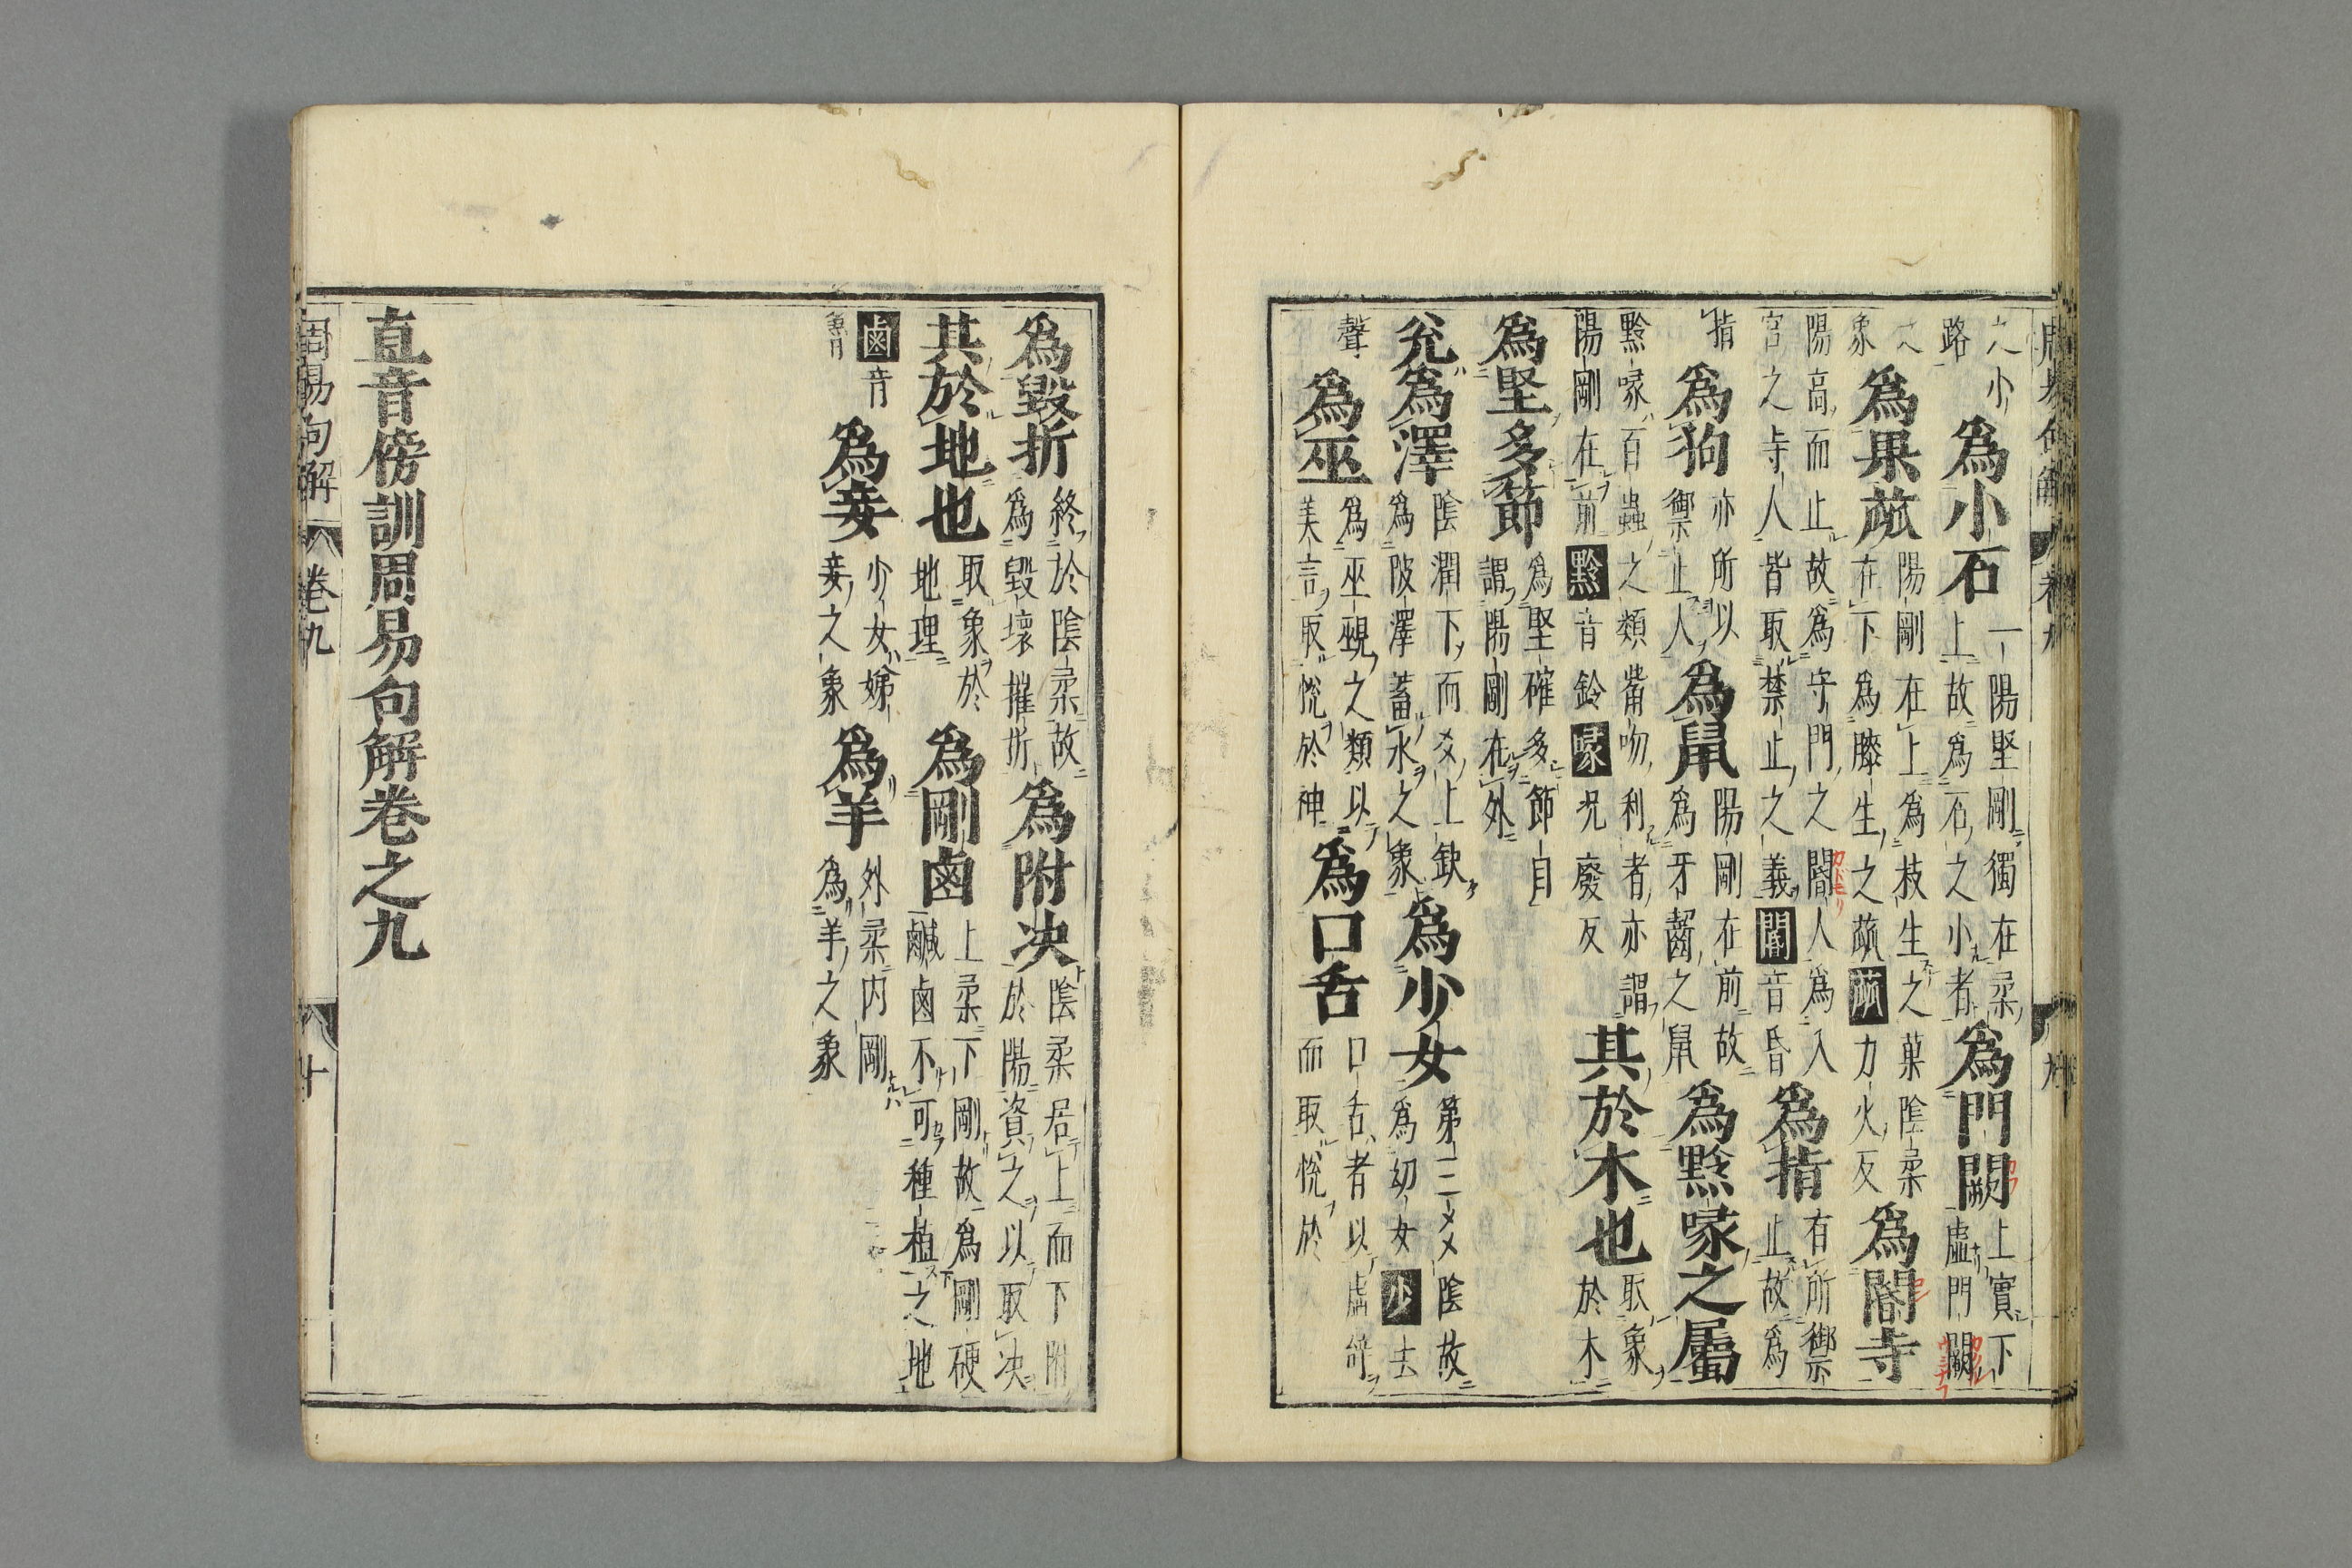 之小路爲小石一陽堅剛獨在柔上故爲石之小者爲門闕上實下虛門闕
之象爲果蓏陽剛在上爲枝生之菓陰柔在下爲藤生之蓏蓏力火反爲閽寺
陽高而止故爲守門之閽人爲入宮之寺人皆取禁止之義閽音昏爲指有所禦止故爲
指爲狗亦所以禦止人爲鼠陽剛在前故爲牙齧之鼠爲黔喙之屬
黔喙百蟲之類觜吻利者亦謂陽剛在前黔音鈴喙況廢反其於木也取象於木
爲堅多節爲堅確多節目謂陽剛在外
兊爲澤陰潤下而爻上缺爲陂澤蓄水之象爲少女第三爻陰故爲幼女少去
聲爲巫爲巫覡之類以美言取悅於神爲口舌口舌者以虛辭而取悅於
爲毀折終於陰柔故爲毀壞摧折爲附决陰柔居上而下附於陽資之以取决
其於地也取象於地理爲剛鹵上柔下剛故爲剛硬鹹鹵不可種植之地
鹵音魯爲妾少女娣妾之象爲羊外柔内剛爲羊之象
直音傍訓周易句解卷之九
周易句解
卷九
十